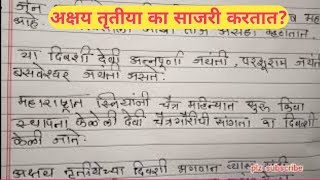 अक्षय तृतीया का साजरी करतात?
आहे.
असेही म्हणतात.
या दिवशी देवी अन्नपूर्णा जयंती, परशुराम जयंती
बसवेश्वर जयंती असते.
महाराष्ट्रात स्त्रियांनी चैत्र महिन्यात सुरू किंवा
स्थापना केलेली देवी चैत्रगौरीची सांगता या दिवशी
केली जाते.
अक्षय तृतीयेच्या दिवशी भगवान व्यास
plz subscribe